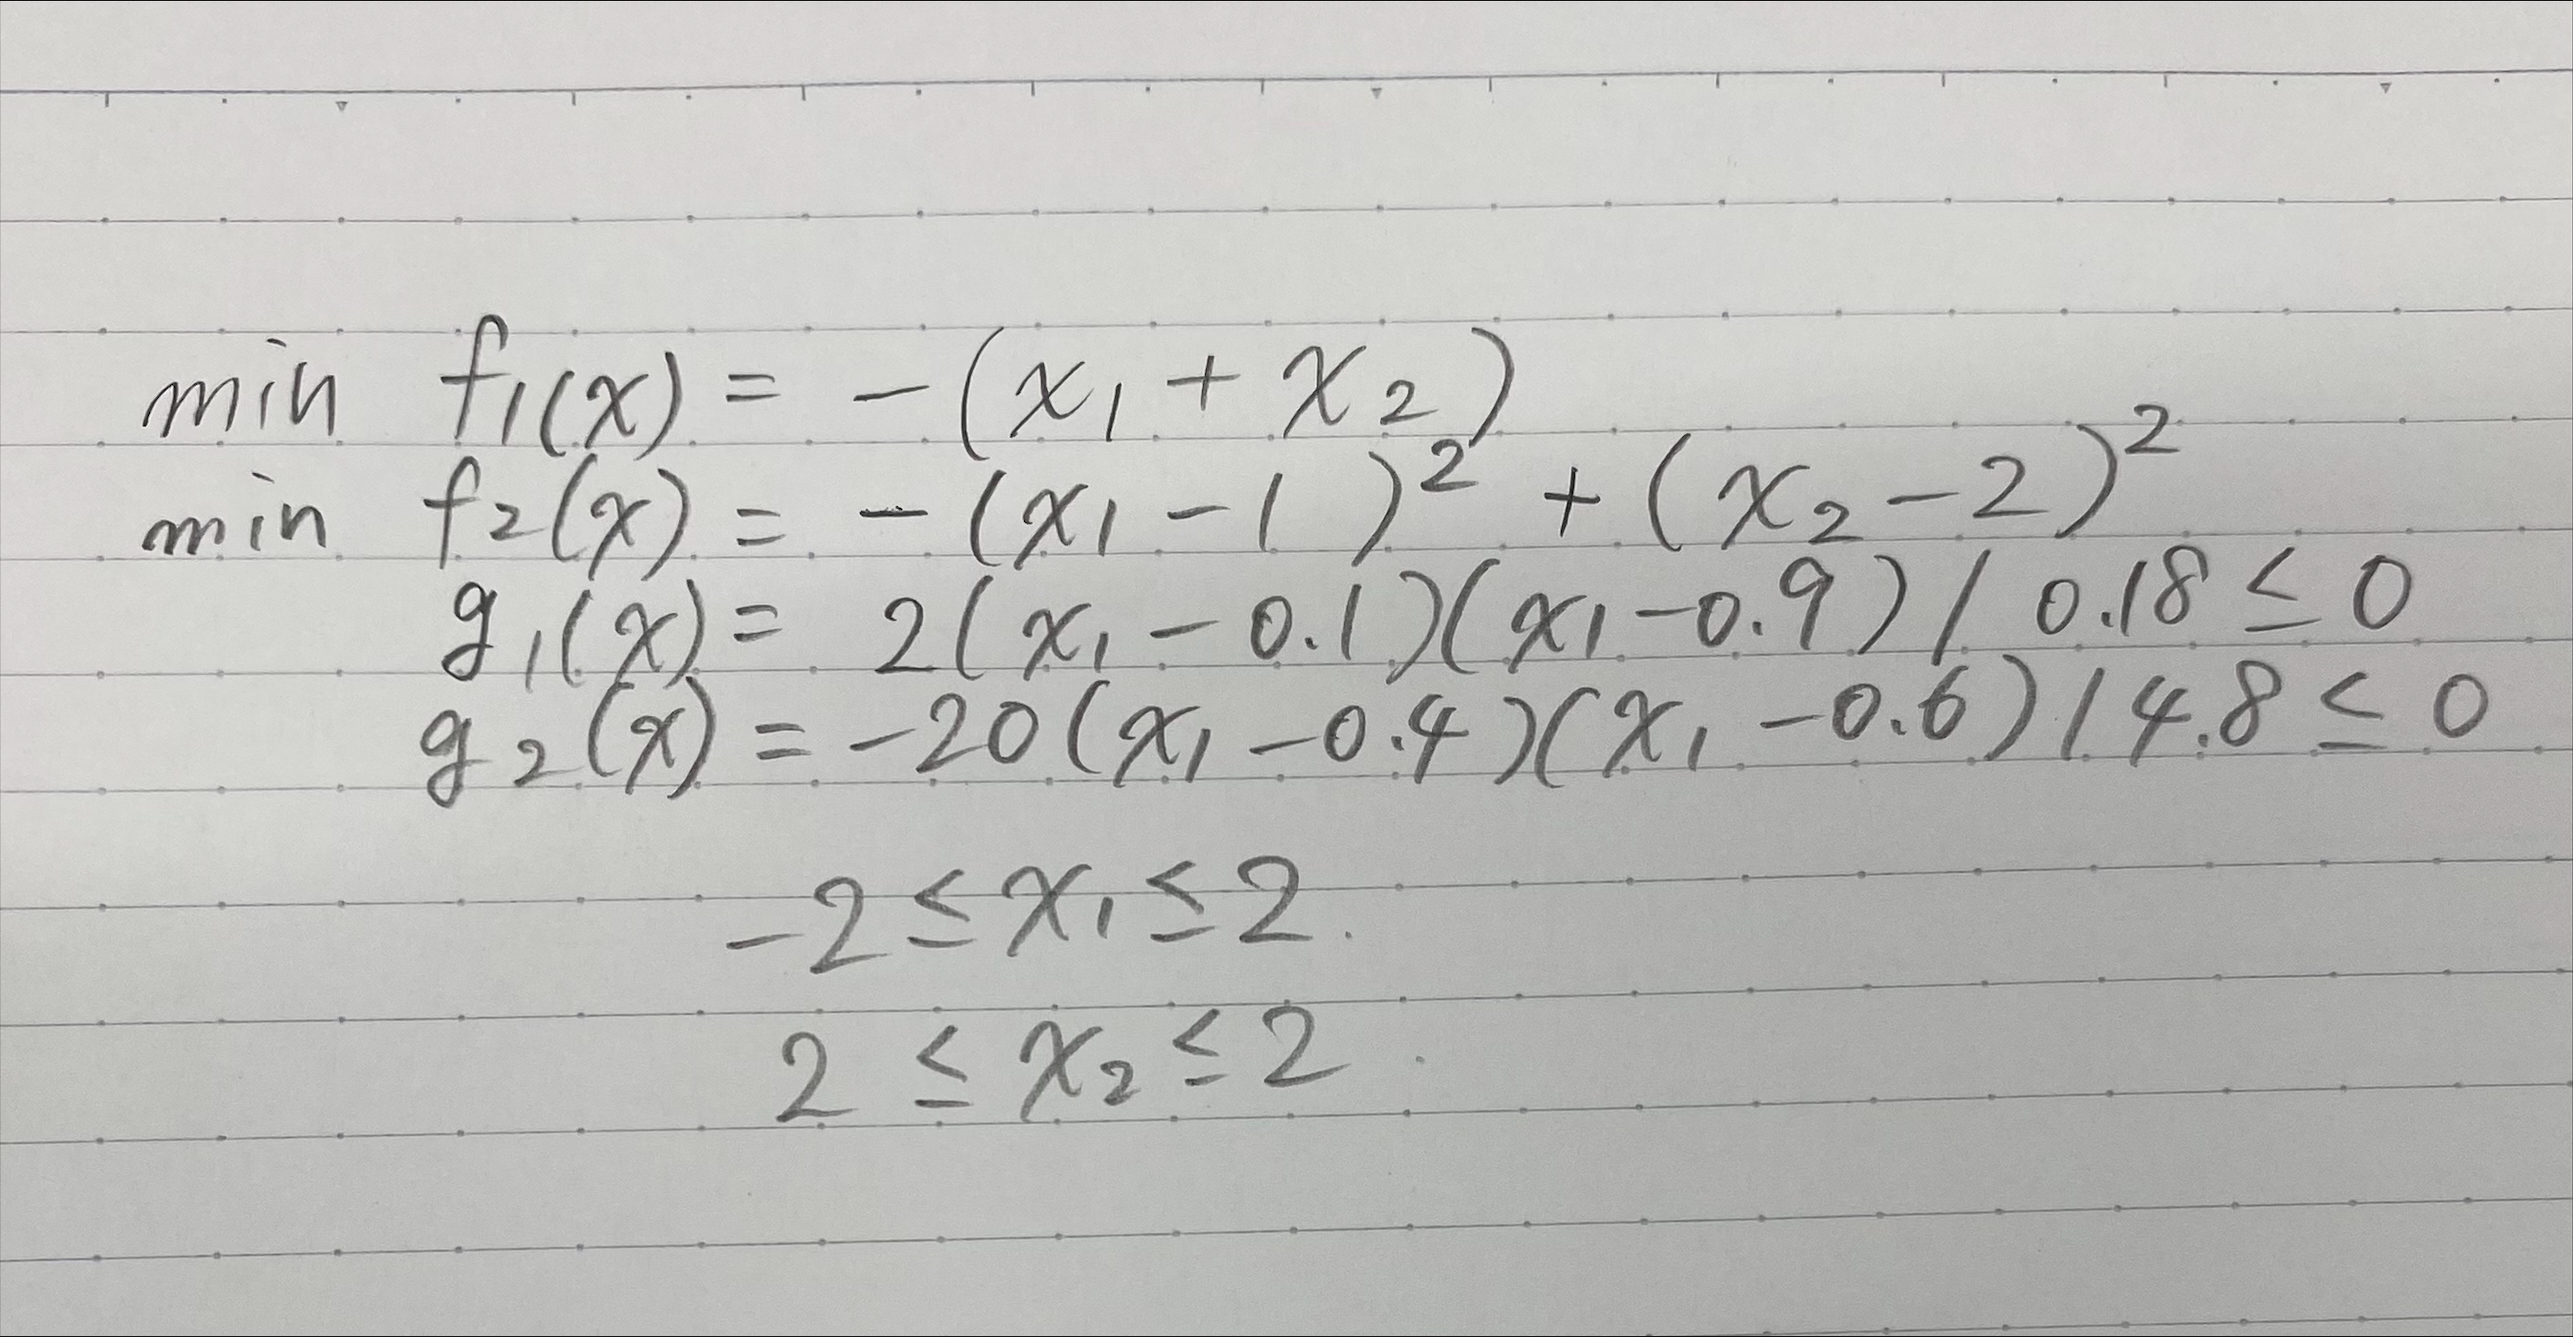 min f₁(x) = -(x₁ + x₂)
min f₂(x) = -(x₁ - 1)² + (x₂ - 2)²
g₁(x) = 2(x₁ - 0.1)(x₁ - 0.9) / 0.18 ≤ 0
g₂(x) = -20(x₁ - 0.4)(x₁ - 0.6) / 4.8 ≤ 0
-2 ≤ x₁ ≤ 2.
2 ≤ x₂ ≤ 2